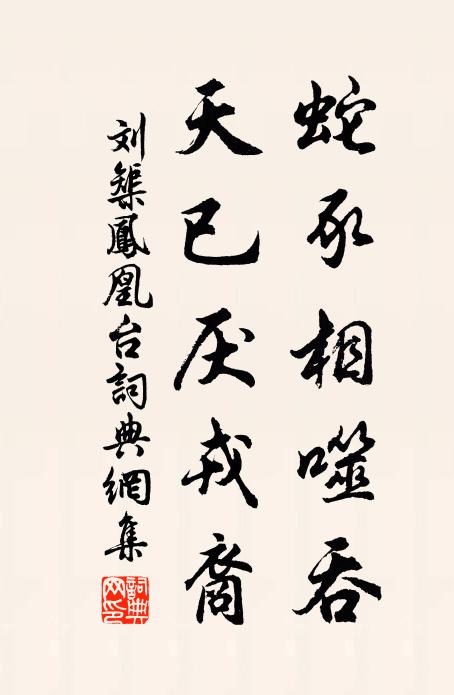 蛇豕相噬吞
天已厌戎裔
刘槩鳳凰台詞典網集
詞典网印